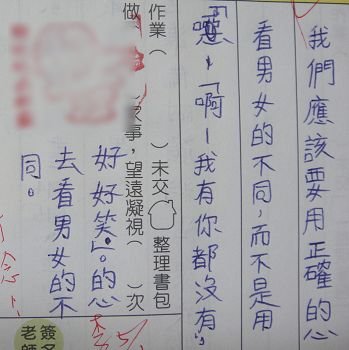 我們應該要用正確的心
看男女的不同,而不是用
「噁~啊~我有你都沒有」,
好好笑」。的心
去看男女的不
同。
作業( )未交 整理書包
做 家事,望遠凝視( )次
簽名
老師